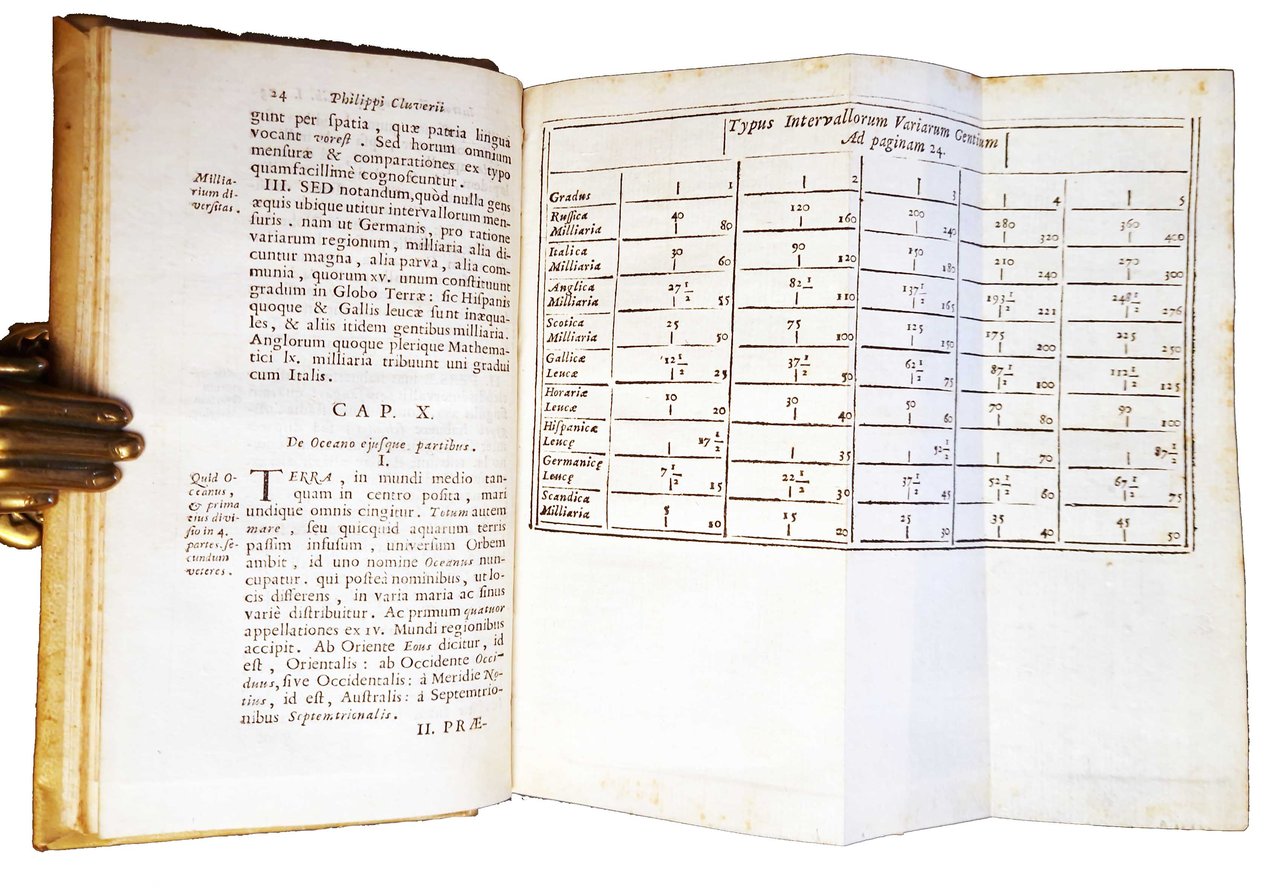 24 Philippi Cluverii
gunt per ſpatia , quæ patria linguâ
vocant voreſt . Sed horum omnium
menſuræ & comparationes ex typo
quamfacillimè cognoſcuntur .
Millia-
rium di-
verſitas .
III. SED notandum, quòd nulla gens
æquis ubique utitur intervallorum men-
ſuris . nam ut Germanis , pro ratione
variarum regionum , milliaria alia di-
cuntur magna , alia parva , alia com-
munia , quorum xv. unum conſtituunt
gradum in Globo Terræ : ſic Hiſpanis
quoque & Gallis leucæ ſunt inæqua-
les , & aliis itidem gentibus milliaria .
Anglorum quoque plerique Mathema-
tici lx. milliaria tribuunt uni gradui
cum Italis .
CAP. X.
De Oceano ejuſque partibus .
I.
Quid O-
ceanus ,
& prima
ejus divi-
ſio in 4.
partes, ſe-
cundum
veteres .
TERRA , in mundi medio tan-
quam in centro poſita , mari
undique omnis cingitur . Totum autem
mare , ſeu quicquid aquarum terris
paſſim infuſum , univerſum Orbem
ambit , id uno nomine Oceanus nun-
cupatur . qui poſteà nominibus , ut lo-
cis differens , in varia maria ac ſinus
variè diſtribuitur . Ac primum quatuor
appellationes ex IV. Mundi regionibus
accipit . Ab Oriente Eous dicitur , id
eſt , Orientalis : ab Occidente Occi-
duus, ſive Occidentalis : à Meridie No-
tius , id eſt , Auſtralis : à Septemtrio-
nibus Septemtrionalis .
II. PRÆ-
Typus Intervallorum Variarum Gentium
Ad paginam 24.
Gradus 1 2 3 4 5
Ruſſica Milliaria 40 80 120 160 200 240 280 320 360 400
Italica Milliaria 30 60 90 120 150 180 210 240 270 300
Anglica Milliaria 27 1/2 55 82 1/2 110 137 1/2 165 193 1/2 221 248 1/2 276
Scotica Milliaria 25 50 75 100 125 150 175 200 225 250
Gallicæ Leucæ 12 1/2 25 37 1/2 50 62 1/2 75 87 1/2 100 112 1/2 125
Horariæ Leucæ 10 20 30 40 50 60 70 80 90 100
Hiſpanicæ Leucę 17 1/2 35 52 1/2 70 87 1/2
Germanicę Leucę 7 1/2 15 22 1/2 30 37 1/2 45 52 1/2 60 67 1/2 75
Scandica Milliaria 5 10 15 20 25 30 35 40 45 50